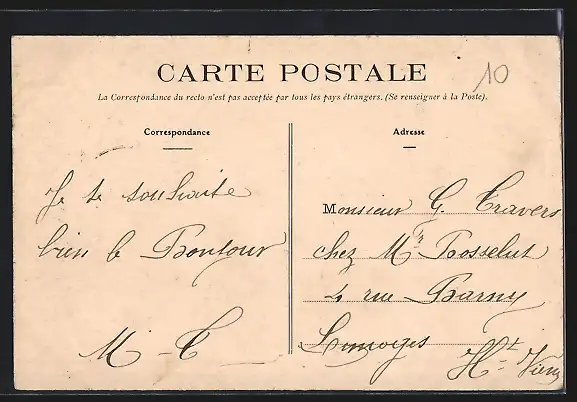 CARTE POSTALE
10
La Correspondance du recto n'est pas acceptée par tous les pays étrangers. (Se renseigner à la Poste).
Correspondance
Je te souhaite
bien le Bonjour
M - T
Adresse
Monsieur G. Travers
chez Mr Rosselut
4 rue Barny
Limoges
Hte Vienne